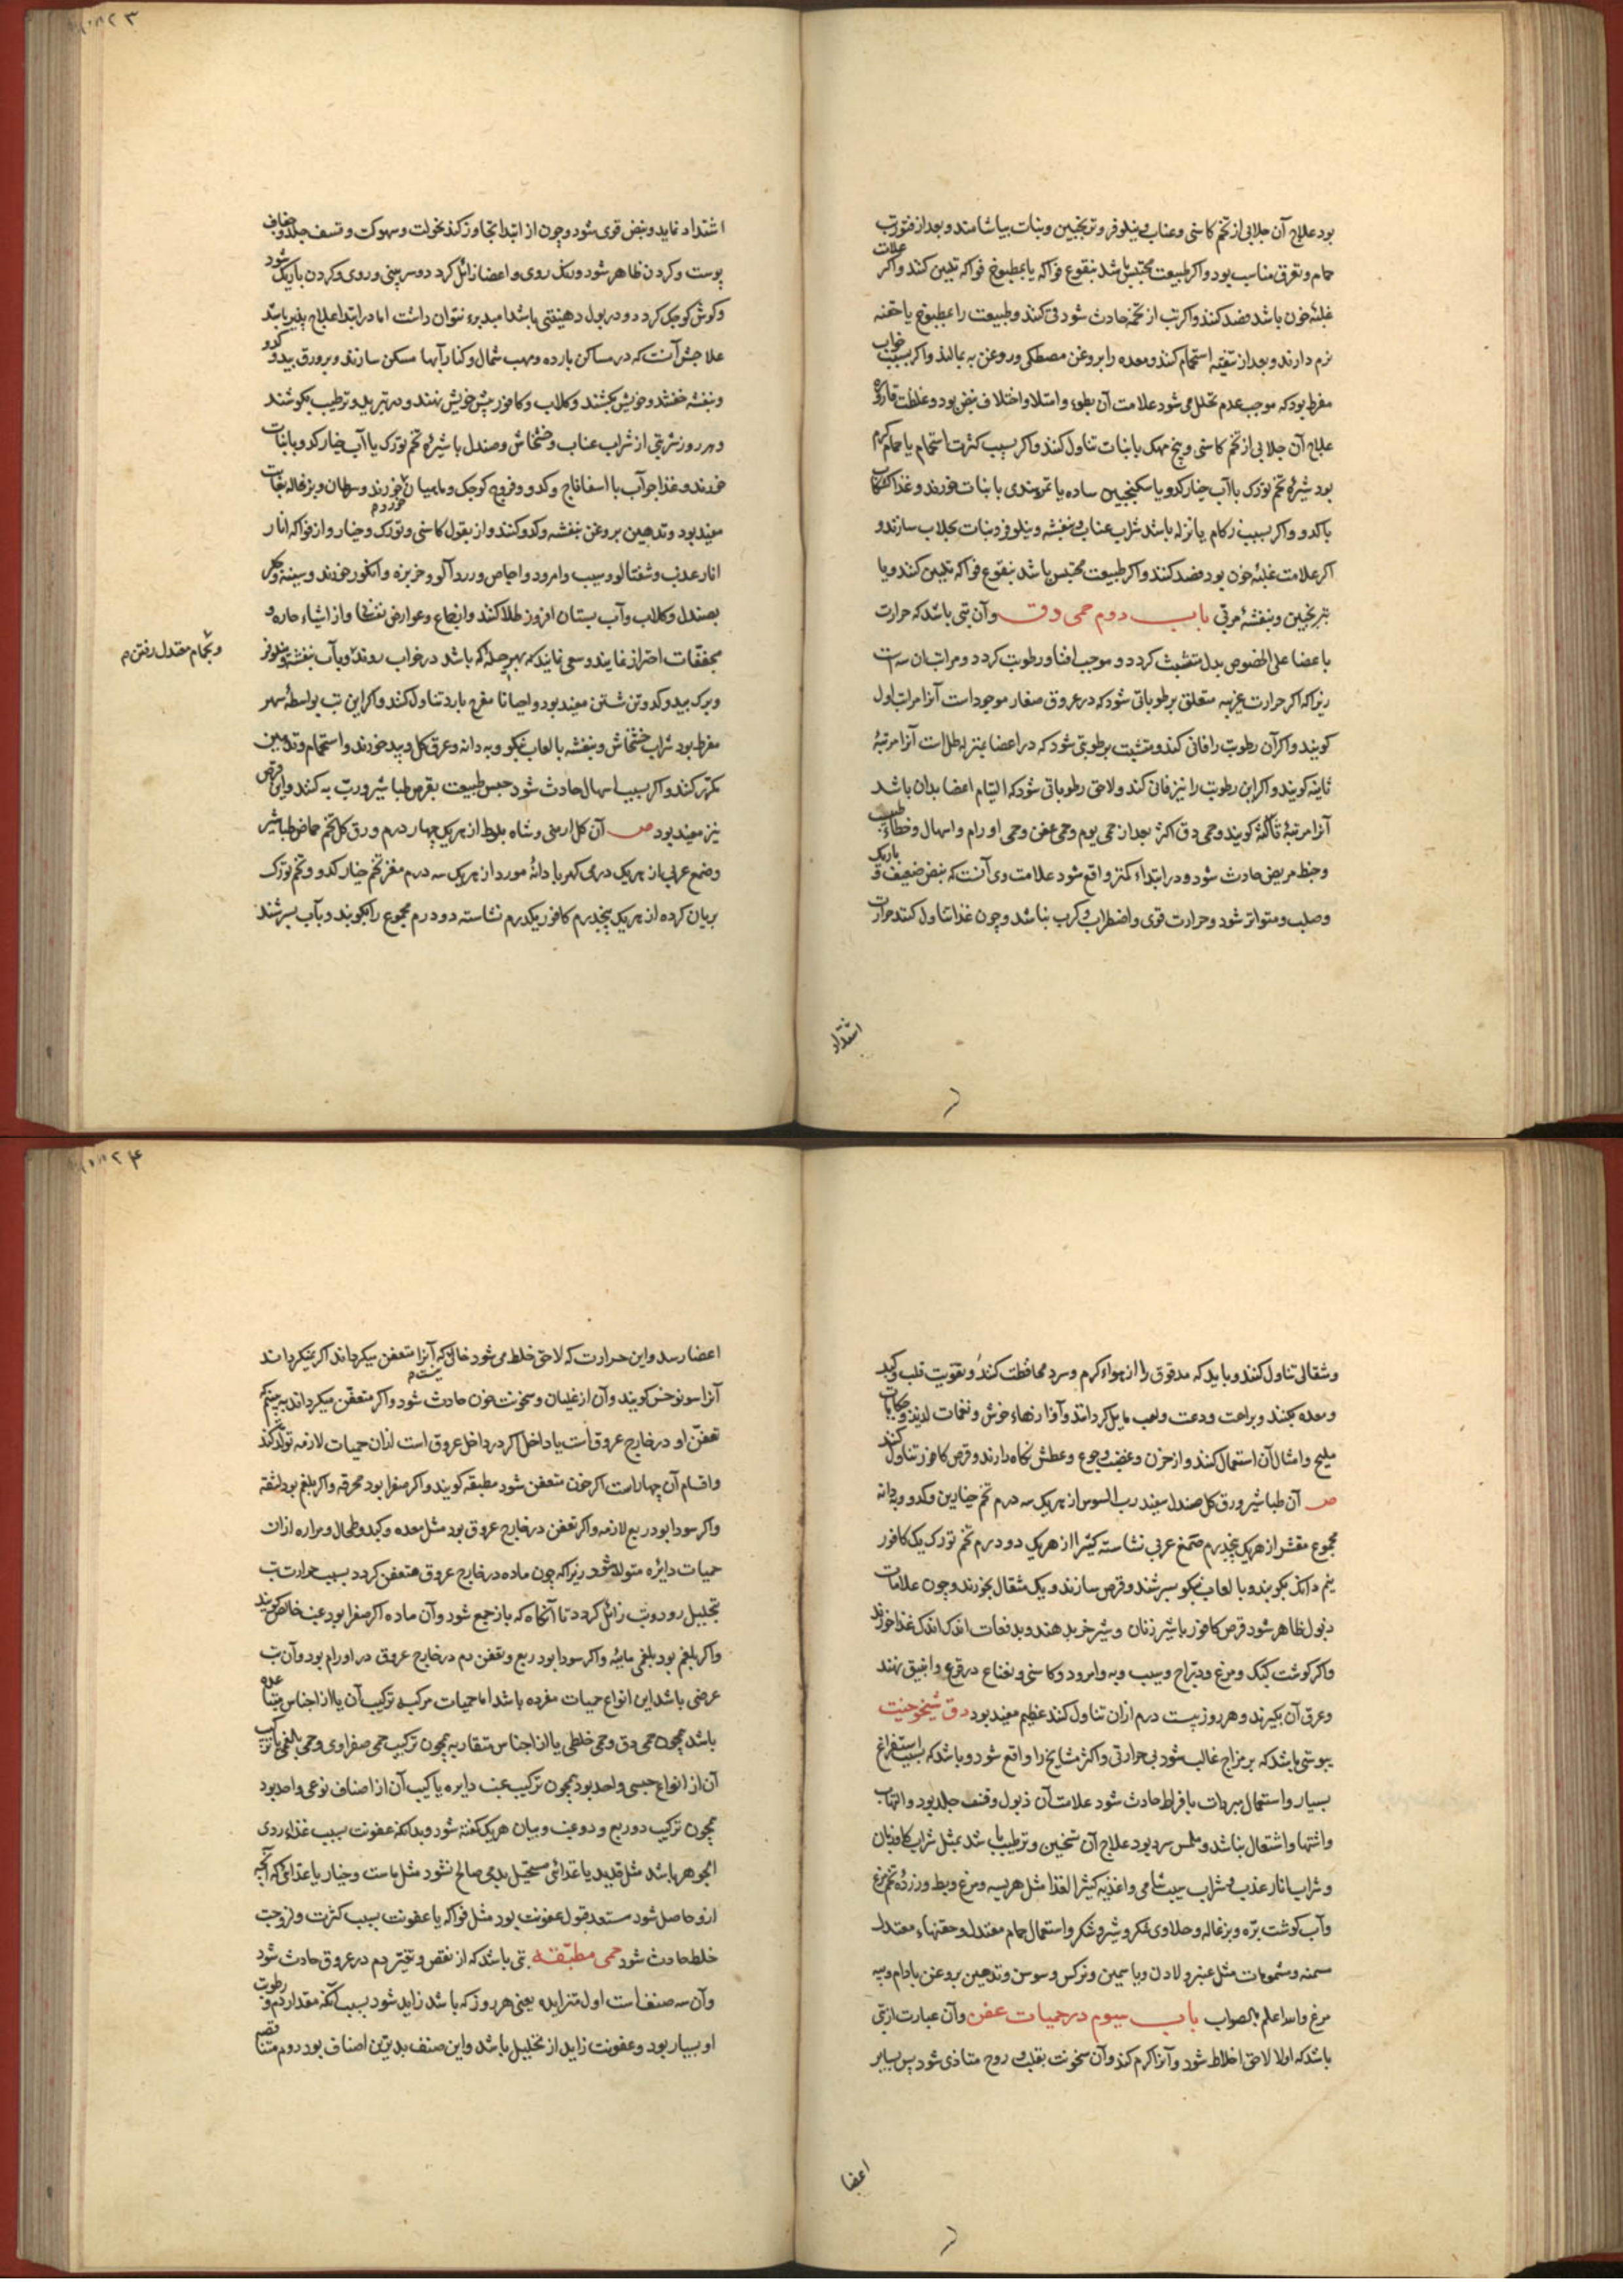 بود علاج آن جلابی از تخم کاسنی و عناب و نیلوفر و ترنجبین و نبات بیاشامند و بعد از فتور تب
حمام و تعرق مناسب بود و اکر طبیعت محتبس باشد بنقوع فواکه یا بمطبوخ فواکه تلیین کنند و اکر علامت
غلبهٔ خون باشد فصد کنند و اکر تب از تخمه حادث شود قی کنند و طبیعت را بمطبوخ یا حقنه
نرم دارند و بعد از تنقیه استحمام کنند و معده را بروغن مصطکی و روغن به بمالند و اکر بسبب خواب
مفرط بود که موجب عدم تحلل می شود علامت آن بطوء و امتلا و اختلاف نبض بود و غلظت قاروره
علاج آن جلابی از تخم کاسنی و بیخ مهک با نبات تناول کنند و اکر بسبب کثرت استحمام یا حمام کرم
بود شیرهٔ تخم تورک با آب خیار کدو یا سکنجبین ساده یا تمر هندی با نبات خورند و غذا کشکاب
با کدو و اکر بسبب زکام یا نزله باشد شراب عناب و بنفشه و نیلوفر و نبات بجلاب سازند و
اکر علامت غلبهٔ خون بود فصد کنند و اکر طبیعت محتبس باشد بنقوع فواکه تلیین کنند و یا
بترنجبین و بنفشهٔ مربی باب دوم حمی دق وآن تبی باشد که حرارت
باعضا علی الخصوص بدل متشبث کردد و موجب افناء رطوبت کردد و مراتب آن سه است
زیرا که اکر حرارت غریبه متعلق برطوباتی شود که در عروق صغار موجود است آنرا مرتبهٔ اول
کویند و اکر آن رطوبت را فانی کند و متشبث برطوبتی شود که در اعضا بمنزلهٔ طل است آنرا مرتبهٔ
ثانیه کویند و اکر این رطوبت را نیز فانی کند و لاحق رطوباتی شود که التیام اعضا بدان باشد
آنرا مرتبهٔ ثالثه کویند و حمی دق اکثر بعد از حمی یوم و حمی عفن و حمی اورام و اسهال و خطاء طبیب
و خبط مریض حادث شود و در ابتداء کمتر واقع شود علامت وی آنست که نبض ضعیف و باریک
و صلب و متواتر شود و حرارت قوی و اضطراب و کرب نباشد و چون غذا تناول کنند حرارت
اشتداد
اشتداد نماید و نبض قوی شود و چون از ابتدا تجاوز کند نحولت و سهوکت و قشف جلد و جفاف
پوست و کردن ظاهر شود و رنک روی و اعضا زائل کردد و سر بینی و روی و کردن باریک شود
و کوش کوچک کردد و در بول دهینتی باشد امید برء نتوان داشت اما در ابتدا علاج پذیر باشد
علاجش آنست که در مساکن بارده و مهب شمال و کنار آبها مسکن سازند و بر ورق بید و کدو
و بنفشه خفتند و خویش کشند و کلاب و کافور پیش خویش نهند و در تبرید و ترطیب کوشند
و هر روز شربتی از شراب عناب و خشخاش و صندل با شیرهٔ تخم تورک یا آب خیار کدو با نبات
خورند و غذا جو آب با اسفاناج و کدو و فروج کوچک و ماهیان خورد و سرطان و بزغاله بغایت
خوردم
مفید بود و تدهین بروغن بنفشه و کدو کنند و از بقول کاسنی و تورک و خیار و از فواکه انار
انار عذب و شفتالو و سیب و امرود و اجاص و زردآلو و خربزه و انکور خورند و سینه و جکر
بصندل و کلاب و آب بستان افروز طلا کنند و از جماع و عوارض نفسانی و از اشیاء حاره و
مجففات احتراز نمایند و سعی نمایند که بهر حیله که باشد در خواب روند و بآب بنفشه و نیلوفر
و بحمام معتدل رفتن م
و برک بید و کدو تن شستن مفید بود و احیانا مفرح بارد تناول کنند و اکر این تب بواسطهٔ سهر
مفرط بود شراب خشخاش و بنفشه با لعاب نیکو و به دانه و عرق کل و بید خورند و استحمام و تدهین
مکرر کنند و اکر بسبب اسهال حادث شود حبس طبیعت بقرص طباشیر و رب به کنند و این قرص
نیز مفید بود ص آن کل ارمنی و شاه بلوط از هریک چهار درم ورق کل تخم حماض طباشیر
و صمغ عربی از هریک درمی کهربا دانهٔ مورد از هریک سه درم مغز تخم خیار کدو و تخم تورک
بریان کرده از هریک پنجدرم کافور یکدرم نشاسته دو درم مجموع را بکوبند و بآب بسرشند
و شقالی تناول کنند و باید که مدقوق را از هواء کرم و سرد محافظت کنند و تقویت قلب و کبد
و معده بکنند و براحت و دعت و لعب مایل کردانند و آوازهاء خوش و نغمات لذیذ و حکایات
ملیح و امثال آن استعمال کنند و از حزن و غضب و جوع و عطش نکاه دارند و قرص کافور تناول کنند
ص آن طباشیر ورق کل صندل سفید رب السوس از هریک سه درم تخم خیارین و کدو و به دانه
مجموع مقشر از هریک پنجدرم صمغ عربی نشاسته کتیرا از هریک دو درم تخم تورک یک کافور
نیم دانک بکوبند و با لعاب نیکو بسرشند و قرص سازند و یک مثقال بخورند و چون علامات
ذبول ظاهر شود قرص کافور با شیر زنان و شیر خر بدهند و بدفعات اندک اندک غذا خورند
و اکر کوشت کبک و مرغ و دراج و سیب و به و امرود و کاسنی و نعناع در قرع و انبیق نهند
و عرق آن بکیرند و هر روز بیست درم ازان تناول کنند عظیم مفید بود دق شیخوخیت
یبوستی باشد که بر مزاج غالب شود بی حرارتی و اکثر مشایخ را واقع شود و باشد که بسبب استفراغ
بسیار و استعمال مبردات بافراط حادث شود علامت آن ذبول و قشف جلد بود و التهاب
و اشتها و اشتعال نباشد و ملمس سرد بود علاج آن تسخین و ترطیب باشد بمثل شراب کاوزبان
و شراب انار عذب و شراب سیب شامی و اغذیه کثیر الغذا مثل هریسه و مرغ و بط و زردهٔ تخم مرغ
و آب کوشت بره و بزغاله و حلاوی شکر و شیر و شکر و استعمال حمام معتدل و حقنهاء معتدل
مسمنه و مشمومات مثل عنبر و لادن و یاسمین و نرکس و سوسن و تدهین بروغن بادام و پیه
مرغ والله اعلم بالصواب باب سیوم در حمیات عفن وآن عبارت از تبی
باشد که اولا لاحق اخلاط شود و آنرا کرم کند و آن سخونت بقلب و روح متادی شود پس بسایر
اعضا
اعضا رسد و این حرارت که لاحق خلط می شود خالی نیست که آنرا متعفن میکرداند اکر نمیکرداند
آنرا سونوخس کویند و آن از غلیان و سخونت خون حادث شود و اکر متعفن میکرداند ببینیم که
تعفن او در خارج عروق است یا داخل اکر در داخل عروق است ازان حمیات لازمه تولد کند
و اقسام آن چهار است اکر خون متعفن شود مطبقه کویند و اکر صفرا بود محرقه و اکر بلغم بود لثقه
و اکر سودا بود ربع لازمه و اکر تعفن در خارج عروق بود مثل معده و کبد و طحال و مراره ازان
حمیات دائره متولد شود زیرا که چون ماده در خارج عروق متعفن کردد بسبب حرارت تب
بتحلیل رود و تب زائل کردد تا آنکاه که باز جمع شود و آن ماده اکر صفرا بود غب خالص کویند
و اکر بلغم بود بلغمی نایبه و اکر سودا بود ربع و تعفن دم در خارج عروق در اورام بود و آن تب
عرضی باشد این انواع حمیات مفرده باشد اما حمیات مرکبه ترکیب آن یا از اجناس متباعده
باشد همچون حمی دق و حمی خلطی یا از اجناس متقاربه همچون ترکیب حمی صفراوی و حمی بلغمی یا ترکیب
آن از انواع جنسی واحد بود همچون ترکیب غب دایره یا ترکیب آن از اصناف نوعی واحد بود
همچون ترکیب دو ربع و دو غب و بیان هریک کفته شود و بدانکه عفونت بسبب غذاء ردی
الجوهر باشد مثل قدید یا غذائی مستحیل بدم صالح نشود مثل ماست و خیار یا غذائی که آنچه
ازو حاصل شود مستعد قبول عفونت بود مثل فواکه یا عفونت بسبب کثرت و لزوجت
خلط حادث شود حمی مطبقه تبی باشد که از نقص و تغیر دم در عروق حادث شود
وآن سه صنف است اول متزایده یعنی هر روز که باشد زاید شود بسبب آنکه مقدار دم و رطوبت
او بسیار بود و عفونت زاید از تحلیل باشد و این صنف بدترین اصناف بود دوم متناقصه